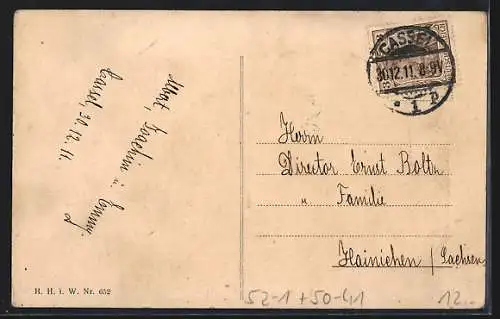 CASSEL
30.12.11. 8-9V
* 1 p
Cassel, 30.12.11.
Joachim u. Emmy.
Herrn
Director Ernst Bolte
" Familie
Hainichen / Sachsen
H. H. i. W. Nr. 652
52-1+50-41
12.-